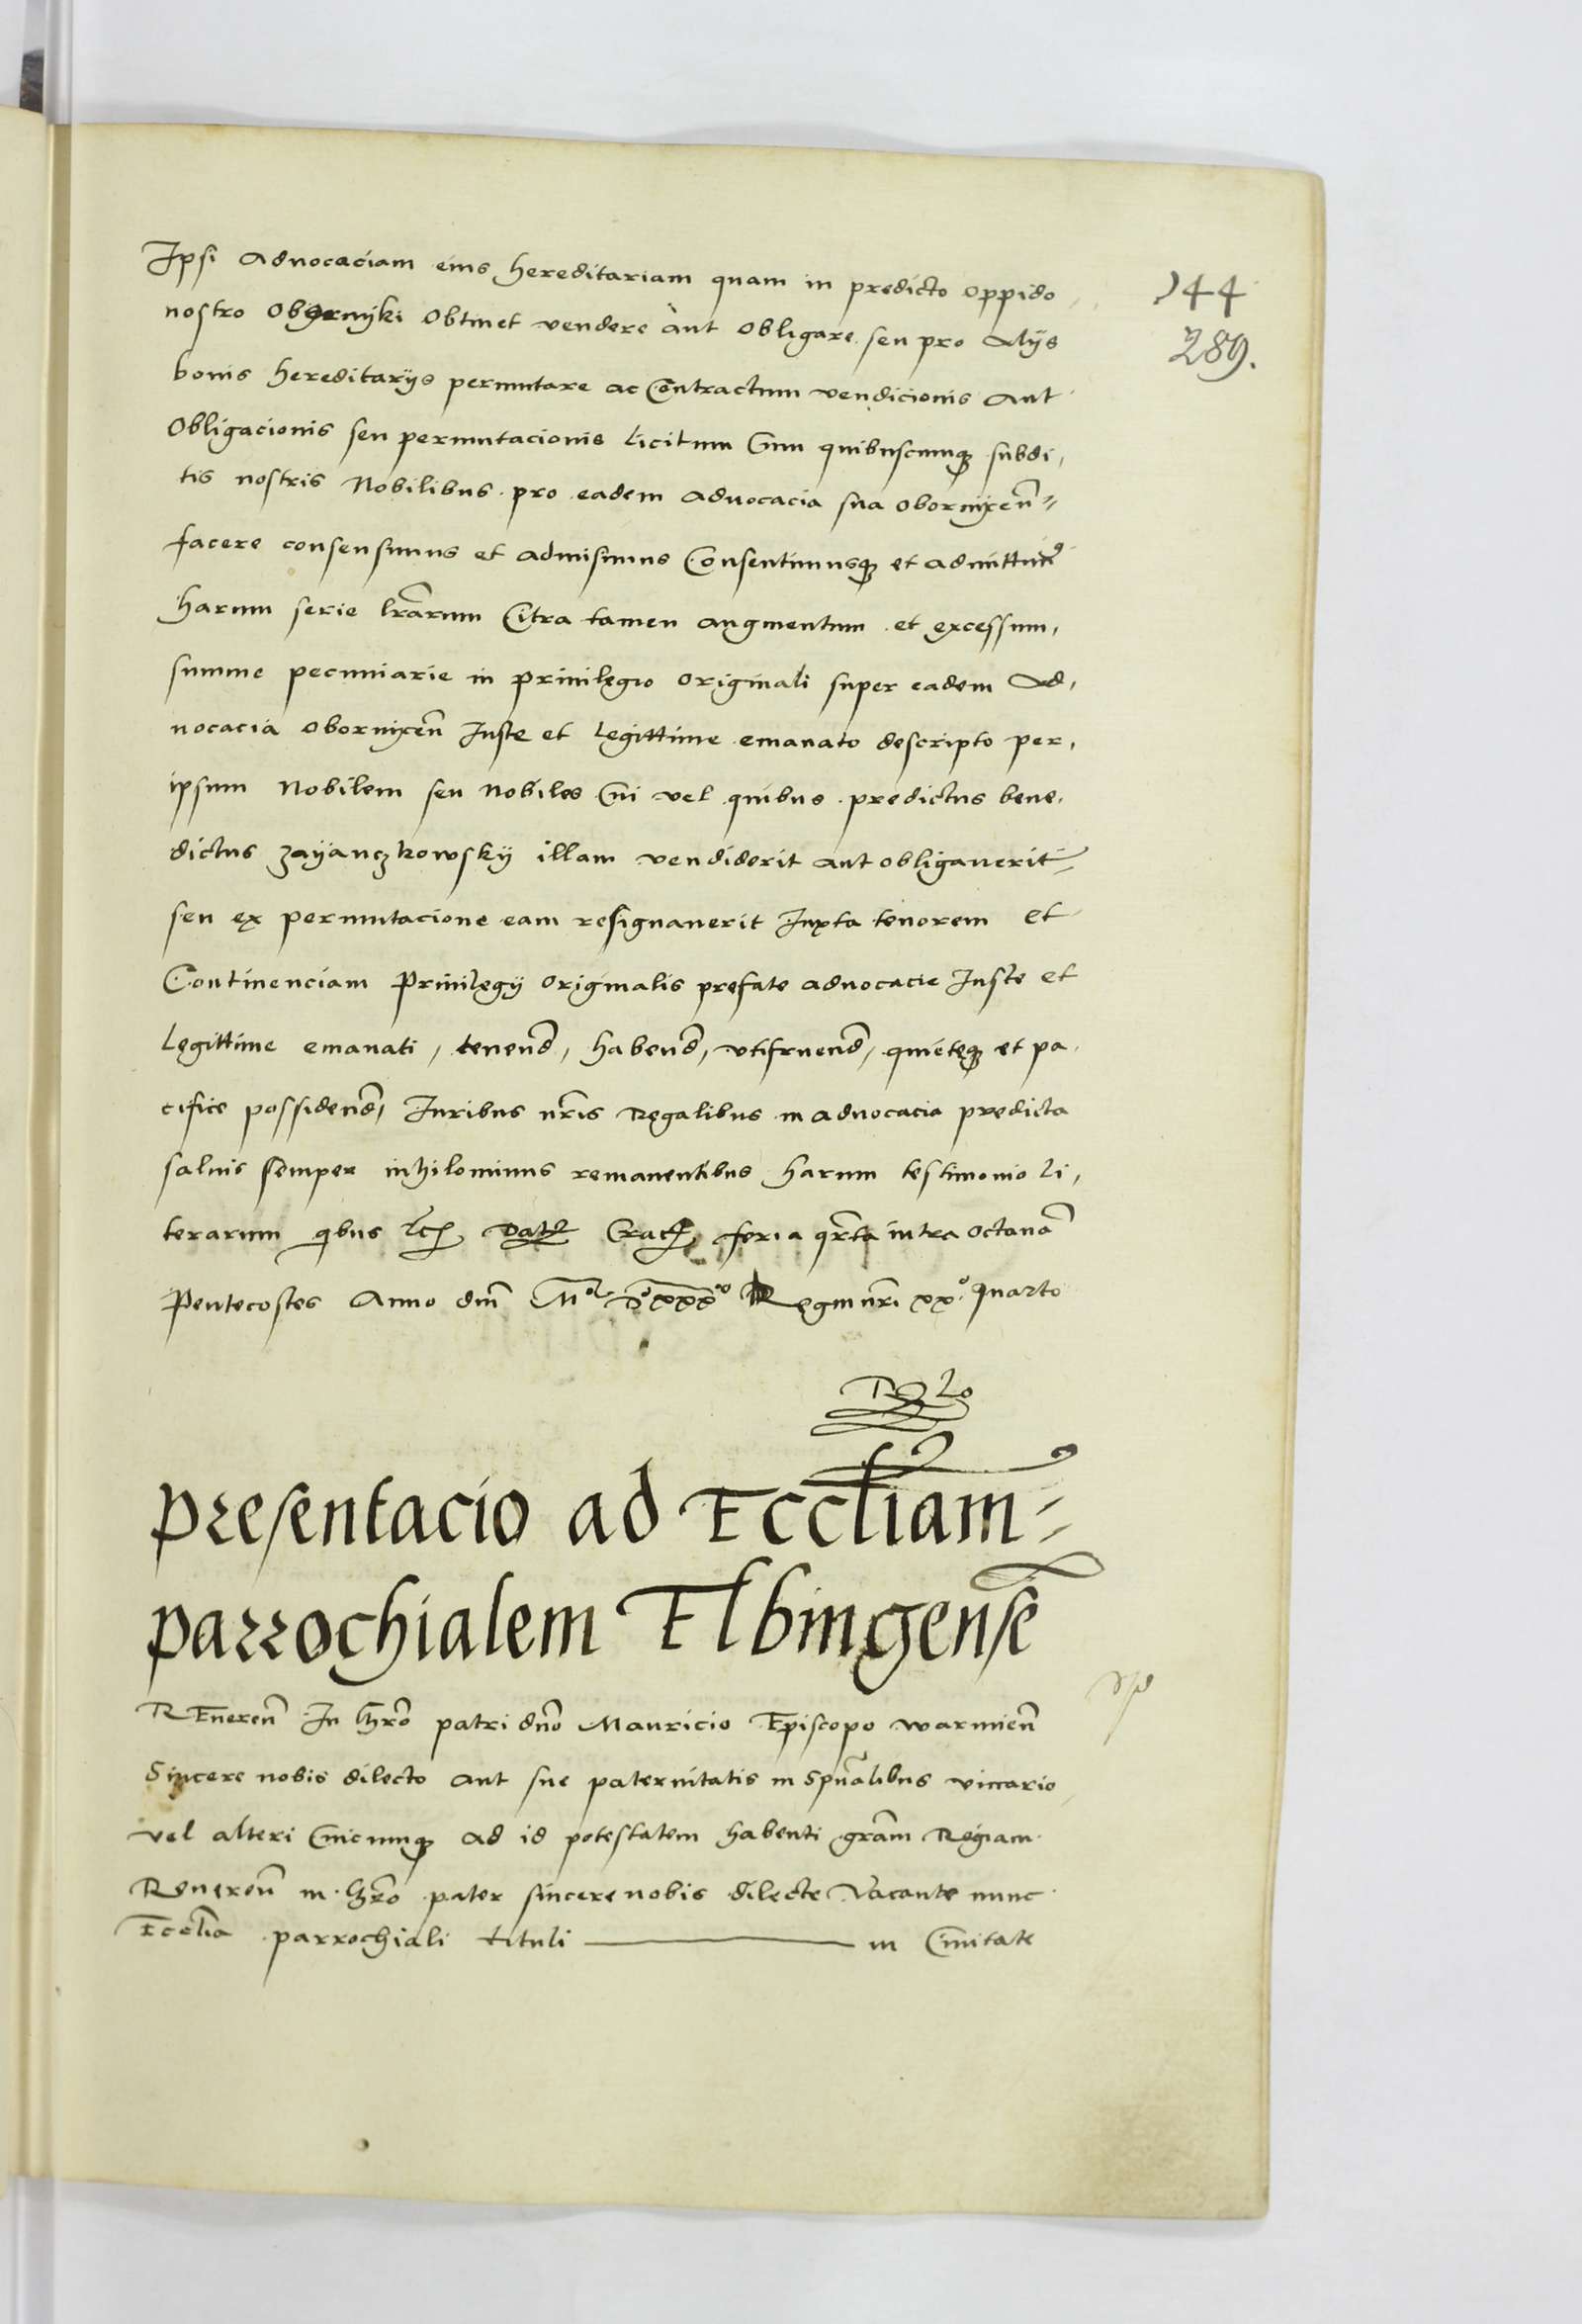 Ipsi Aduocaciam eius hereditariam quam in predicto oppido
144
289.
nostro Obornyki Obtinet vendere aut Obligare seu pro Alijs
bonis hereditarijs permutare ac Contractum vendicionis Aut
Obligacionis seu permutacionis licitum Cum quibuscumq subdi,
tis nostris Nobilibus pro eadem Aduocacia sua Obornycen̄
facere consensimus et Admisimus Consentimusq et Admittim9
harum serie lr̄arum Citra tamen augmentum et excessum,
summe pecuniarie in priuilegio Originali super eadem Ad,
uocacia Obornycen̄ Iuste et legittime emanato descripto per,
ipsum Nobilem seu Nobiles Cui vel quibus predictus bene,
dictus Zayanczkowsky illam vendiderit aut obligauerit
seu ex permutacione eam resignauerit Iuxta tenorem et
Continenciam Priuilegij Originalis prefate aduocacie Iuste et
legittime emanati, tenend̄, habend̄, vtifruend̄, quieteq et pa
cifice possidend̄, Iuribus nr̄is Regalibus in aduocacia predicta
saluis semper inhilominus remanentibus harum testimonio li,
terarum qbus Dat Crac feria qr̄ta intra octauā
Pentecostes Anno dn̄i Mo Do xxxo Regni nr̄i xxo quarto
presentacio ad Eccl̄iam
parrochialem Elbingensē
REueren̄ In Chr̄o patri dn̄o Mauricio Episcopo warmien̄
Sincere nobis dilecto aut sue paternitatis in Spūalibus viccario
vel alteri Cuicumq ad id potestatem habenti gr̄am Regiam
Reueren̄ in Chr̄o pater sincere nobis dilecte Vacante nunc
Eccl̄ia parrochiali tituli in Ciuitate